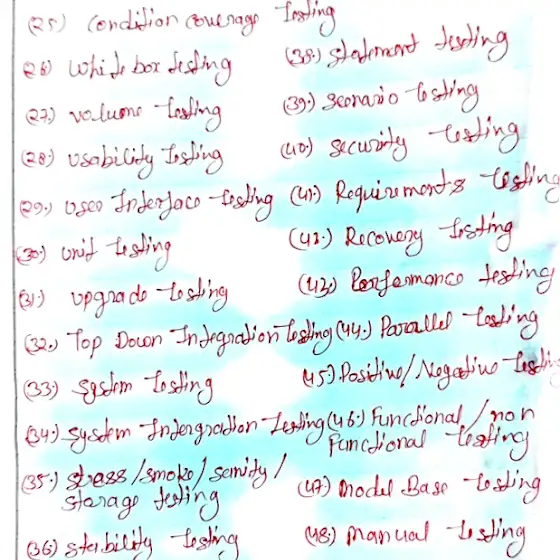 (25) Condition Coverage Testing
(26) White box testing
(27) volume testing
(28) usability Testing
(29.) User Interface testing
(30) unit testing
(31.) upgrade testing
(32.) Top Down Integration testing
(33) System testing
(34) System Integration Testing
(35.) stress/smoke/sanity/
storage testing
(36) stability testing
(38) Statement testing
(39.) Scenario testing
(40) Security testing
(41.) Requirements testing
(42.) Recovery Testing
(43) Performance testing
(44.) Parallel testing
(45) Positive/Negative testi
(46) Functional/non
Functional testing
(47) Model Base testing
(48.) Manual testing